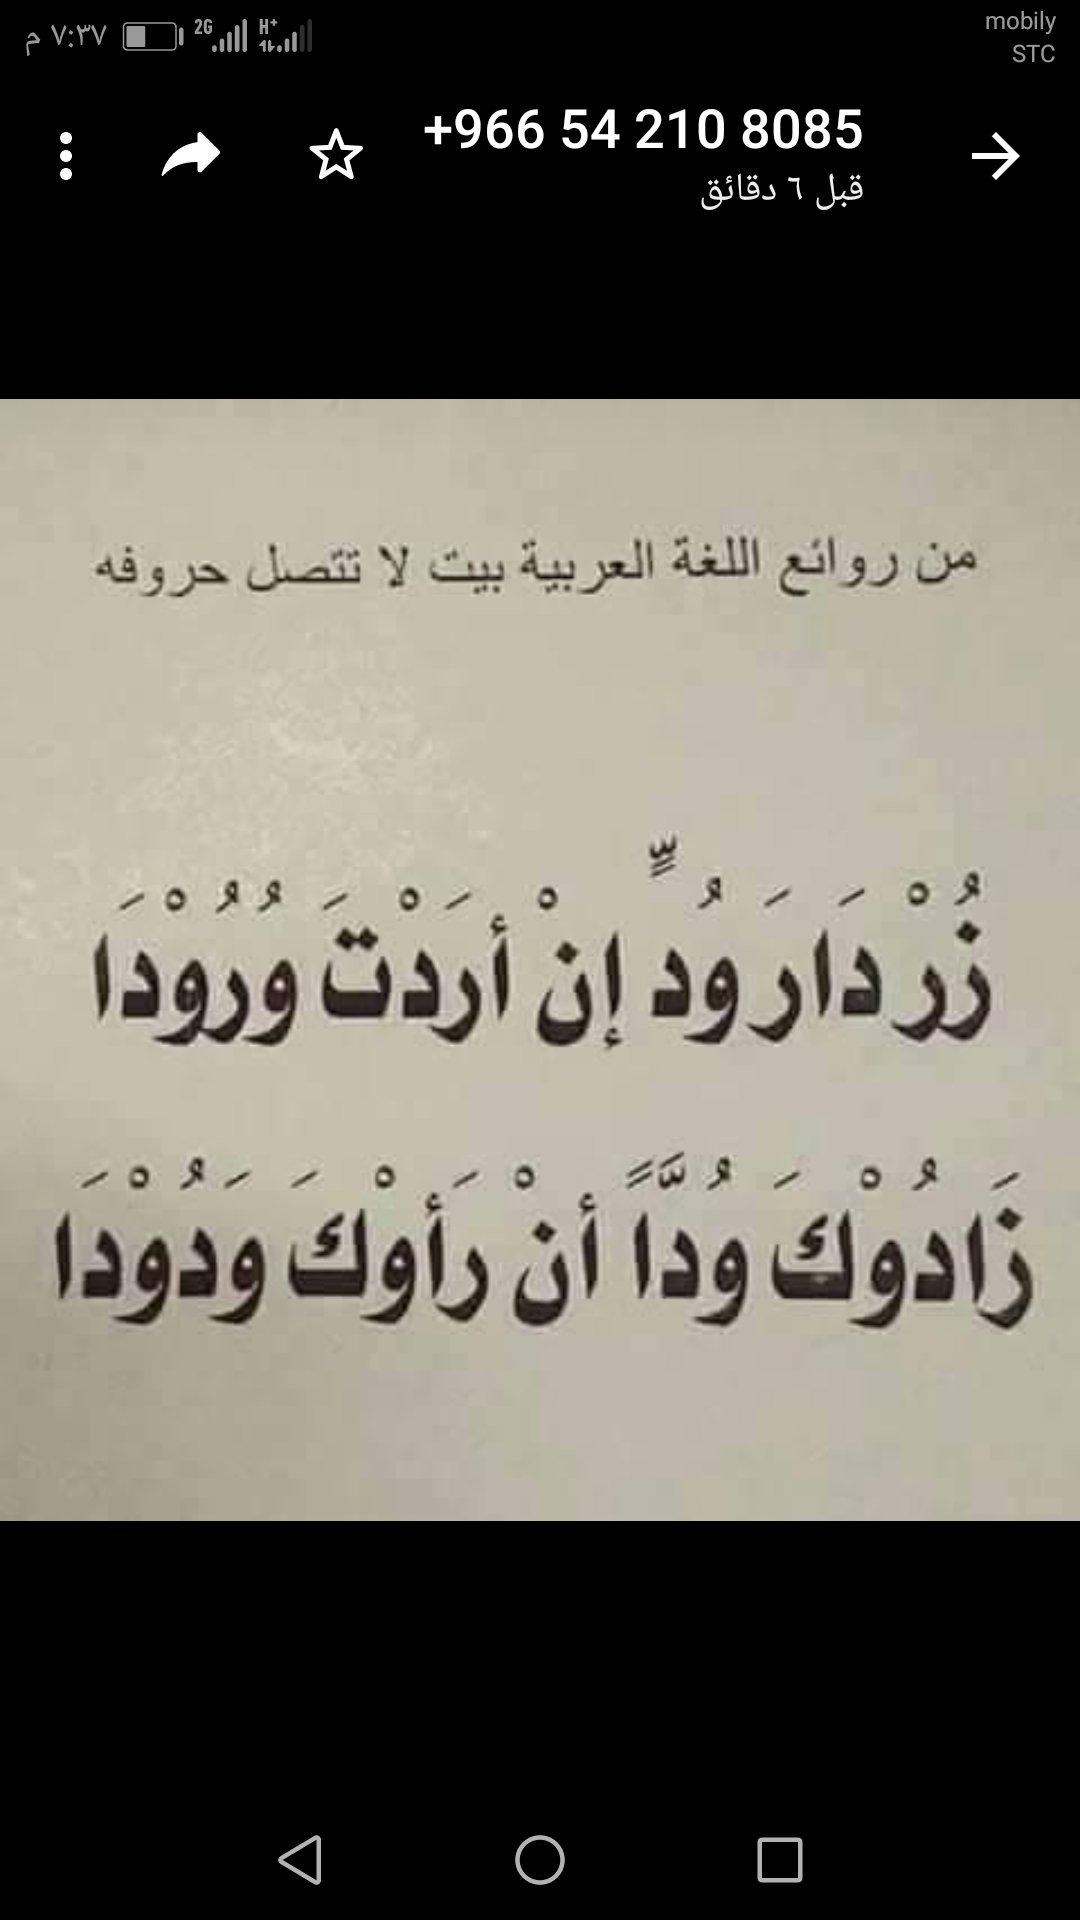 ٧:٣٧ م
2G
H+
mobily
STC
+966 54 210 8085
قبل ٦ دقائق
من روائع اللغة العربية بيت لا تتصل حروفه
زُرْ دَارَ وُدٍّ إنْ أرَدْتَ وُرُوْدَا
زَادُوْكَ وُدَّاً أنْ رَأوْكَ وَدُوْدَا